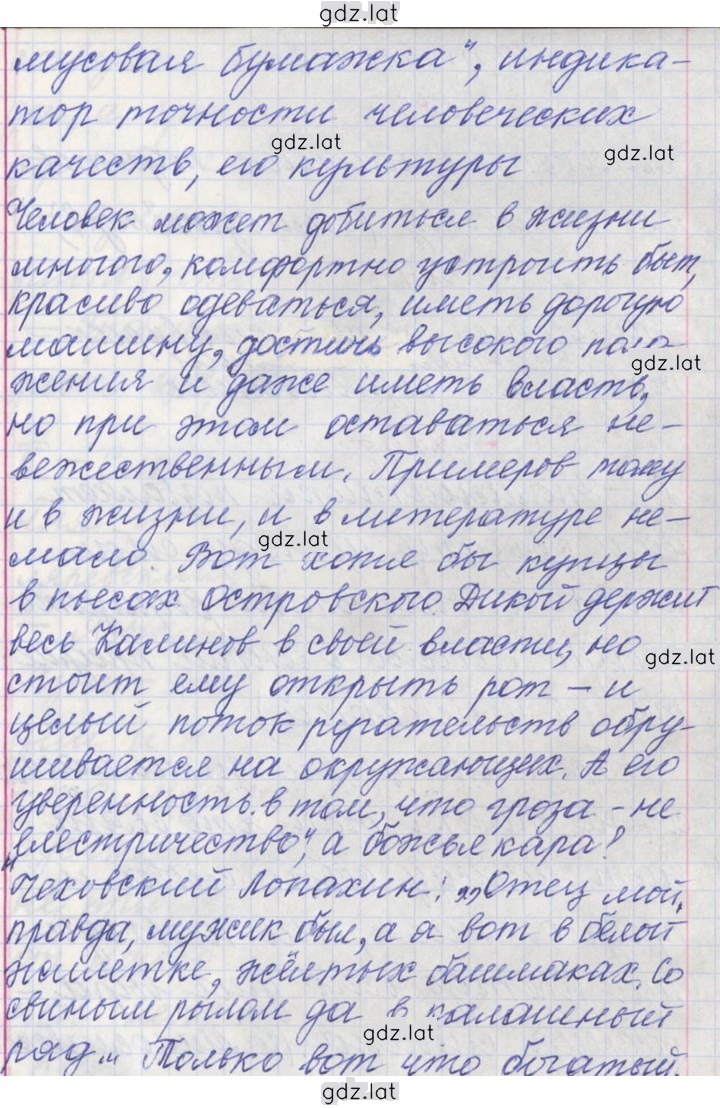 gdz.lat
мусовая бумажка", индика-
тор точности человеческих
gdz.lat
gdz.lat
качеств, его культуры
Человек может добиться в жизни
многого, комфортно устроить быт,
красиво одеваться, иметь дорогую
машину, достичь высокого поло-
gdz.lat
жения и даже иметь власть,
но при этом оставаться не-
вежественным. Примеров тому
и в жизни, и в литературе не-
gdz.lat
мало. Вот хотя бы купцы
в пьесах Островского. Дикой держит
весь Калинов в своей власти, но
gdz.lat
стоит ему открыть рот – и
целый поток ругательств обру-
шивается на окружающих. А его
уверенность в том, что гроза – не
„елестричество", а божья кара?
Чеховский Лопахин: „Отец мой,
правда, мужик был, а я вот в белой
жилетке, жёлтых башмаках. Со
свиным рылом да в калашный
gdz.lat
ряд..." Только вот что богатый,
gdz.lat